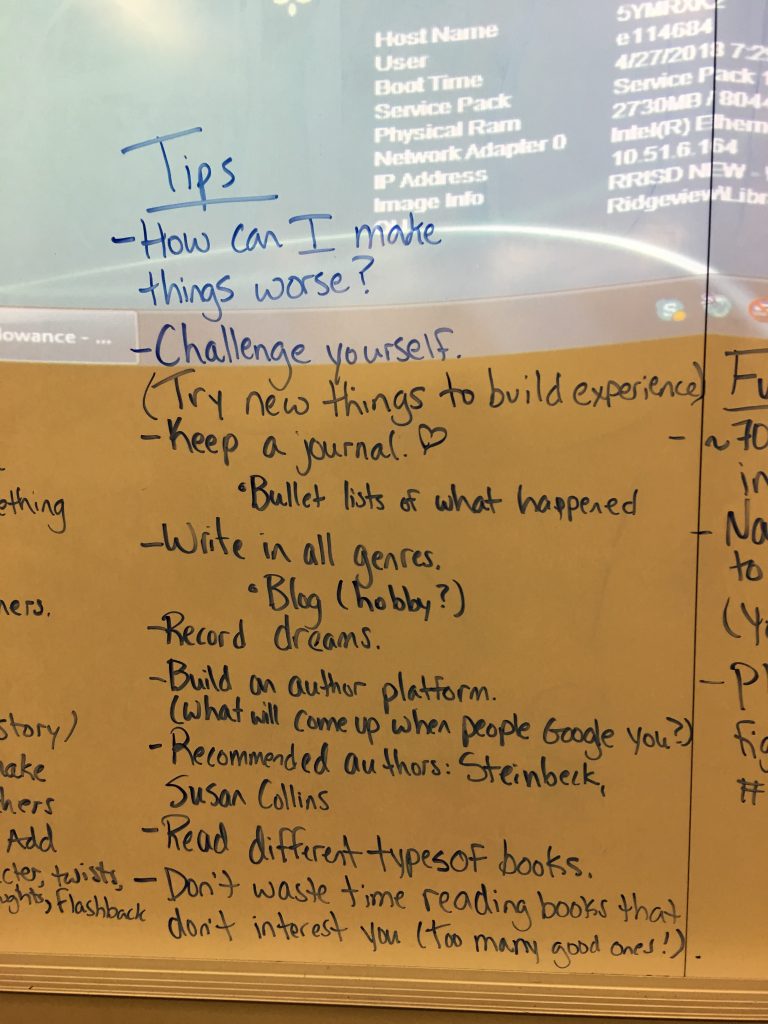 Host Name
e114684
User
4/27/2018
Boot Time
Service Pack
Service Pack
2730MB /
Physical Ram
Intel(R)
Network Adapter 0
10.51.6.164
IP Address
RRISD NEW -
Image Info
Tips
- How can I make
things worse?
lowance - ...
- Challenge yourself.
(Try new things to build experience)
- Keep a journal. ♡
• Bullet lists of what happened
- Write in all genres.
• Blog (hobby?)
- Record dreams.
- Build an author platform.
(What will come up when people Google you?)
- Recommended authors: Steinbeck,
Susan Collins
- Read different types of books.
- Don't waste time reading books that
don't interest you (too many good ones!).
ething
hers.
story)
ake
hers
Add
cter, twists,
ughts, flashback
Fu
- ~70
in
- Na
to
- Pl
fig
#